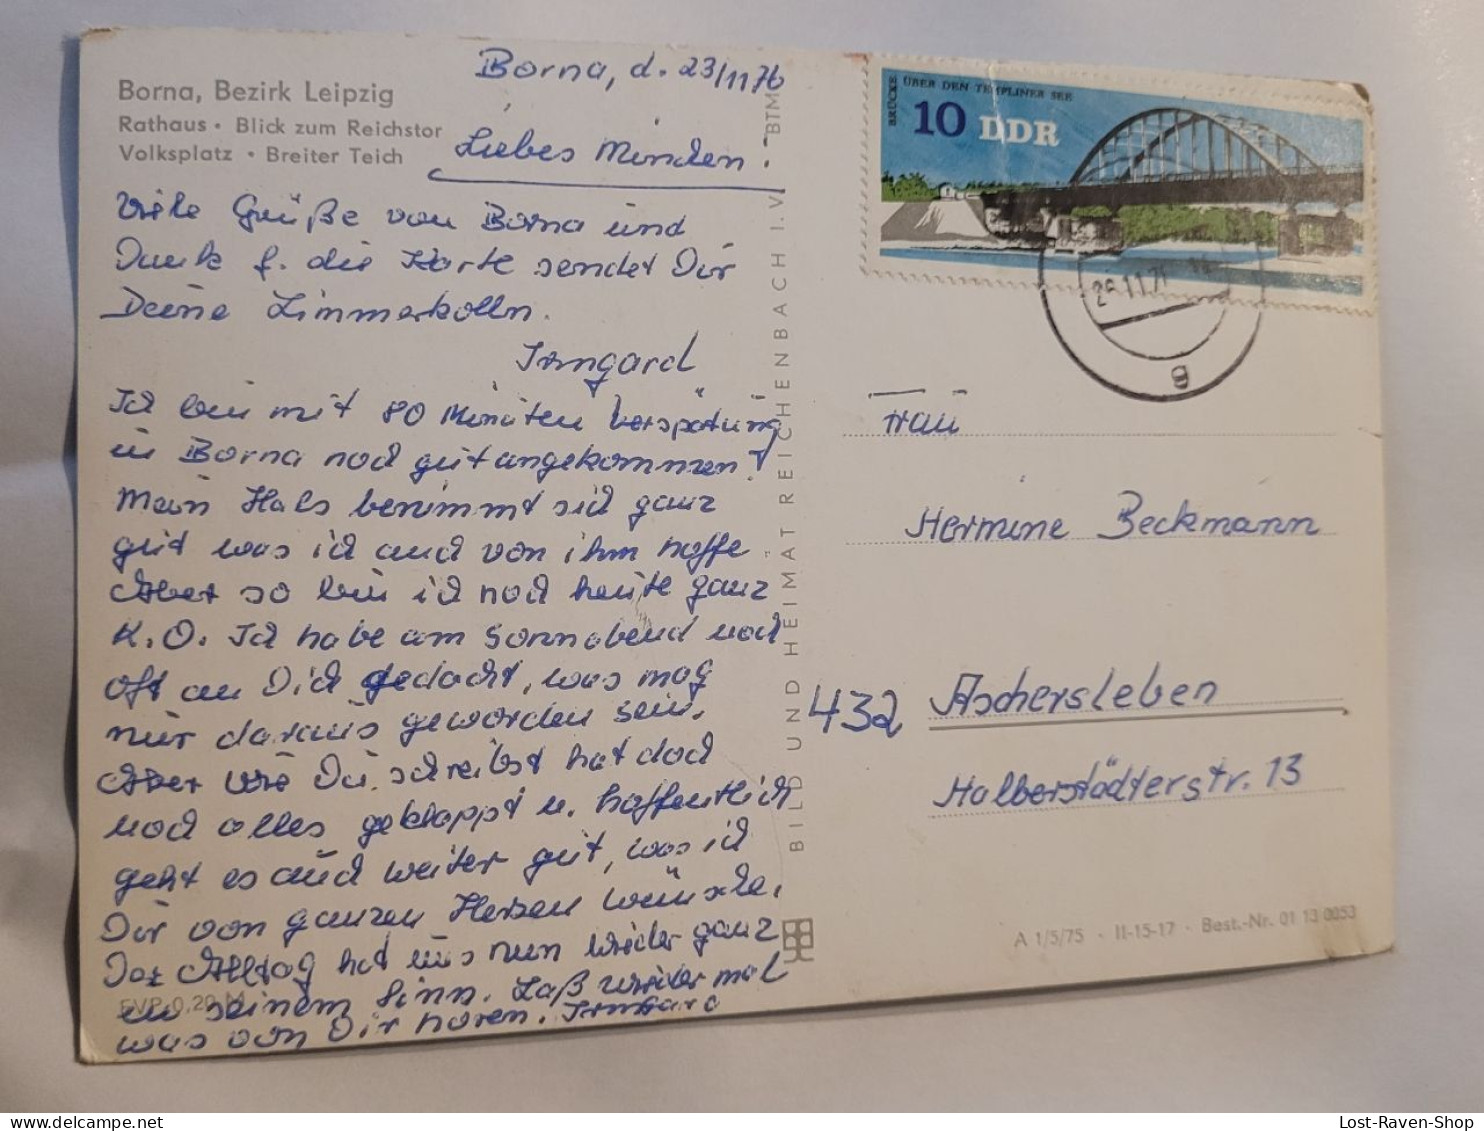 Borna, Bezirk Leipzig
Rathaus • Blick zum Reichstor
Volksplatz • Breiter Teich
Borna, d. 23/11 76
Liebes Minchen
Viele Grüße von Borna und
Dank f. die Karte sendet Dir
Deine Zimmerkolln.
Irmgard
Ich bin mit 80 Minuten Verspätung
in Borna noch gut angekommen!
Mein Hals benimmt sich ganz
gut was ich auch von ihm hoffe
Aber so bin ich noch heute ganz
K.O. Ich habe am Sonnabend noch
oft an Dich gedacht, was mag
nur daraus geworden sein.
Aber wie Du schreibst hat doch
noch alles geklappt u. hoffentlich
geht es auch weiter gut, was ich
Dir von ganzen Herzen wünsche.
Der Alltag hat uns nun wieder ganz
in seinem Sinn. Laß wieder mal
was von Dir hören. Irmgard
EVP 0,20 M
BILD UND HEIMAT REICHENBACH I. V. BTM
BRÜCKE ÜBER DEN TEMPLINER SEE
10 DDR
11.7
g
Frau
Hermine Beckmann
432 Aschersleben
Halberstädterstr. 13
A 1/5/75 · II-15-17 · Best.-Nr. 01 13 0053
Lost-Raven-Shop